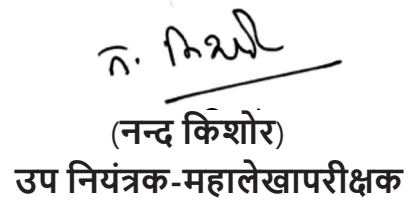 न. किशोर
(नन्द किशोर)
उप नियंत्रक-महालेखापरीक्षक